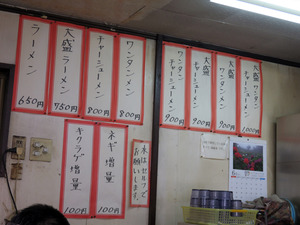 ラーメン
650円
大盛ラーメン
750円
チャーシューメン
800円
ワンタンメン
800円
ワンタン
チャーシューメン
900円
大盛
チャーシューメン
900円
大盛
ワンタンメン
900円
大盛ワンタン
チャーシューメン
1000円
キクラゲ増量
100円
ネギ増量
100円
水はセルフで
お願いします。